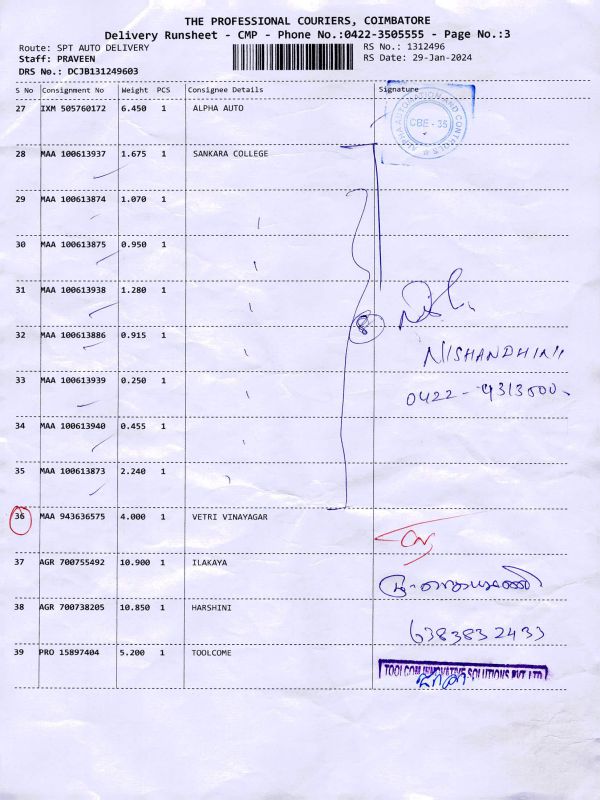 THE PROFESSIONAL COURIERS, COIMBATORE
Delivery Runsheet - CMP - Phone No.:0422-3505555 - Page No.:3
Route: SPT AUTO DELIVERY RS No.: 1312496
Staff: PRAVEEN RS Date: 29-Jan-2024
DRS No.: DCJB131249603
S No Consignment No Weight PCS Consignee Details Signature
27 IXM 505760172 6.450 1 ALPHA AUTO
ALPHA AUTOMATION AND CONTROLS
CBE - 35
28 MAA 100613937 1.675 1 SANKARA COLLEGE
29 MAA 100613874 1.070 1
30 MAA 100613875 0.950 1
31 MAA 100613938 1.280 1
32 MAA 100613886 0.915 1
8
NISHANDHINI
33 MAA 100613939 0.250 1
0422 - 4313500
34 MAA 100613940 0.455 1
35 MAA 100613873 2.240 1
36 MAA 943636575 4.000 1 VETRI VINAYAGAR
37 AGR 700755492 10.900 1 ILAKAYA
38 AGR 700738205 10.850 1 HARSHINI
6383832433
39 PRO 15897404 5.200 1 TOOLCOME
TOOLCOM INNOVATIVE SOLUTIONS PVT LTD